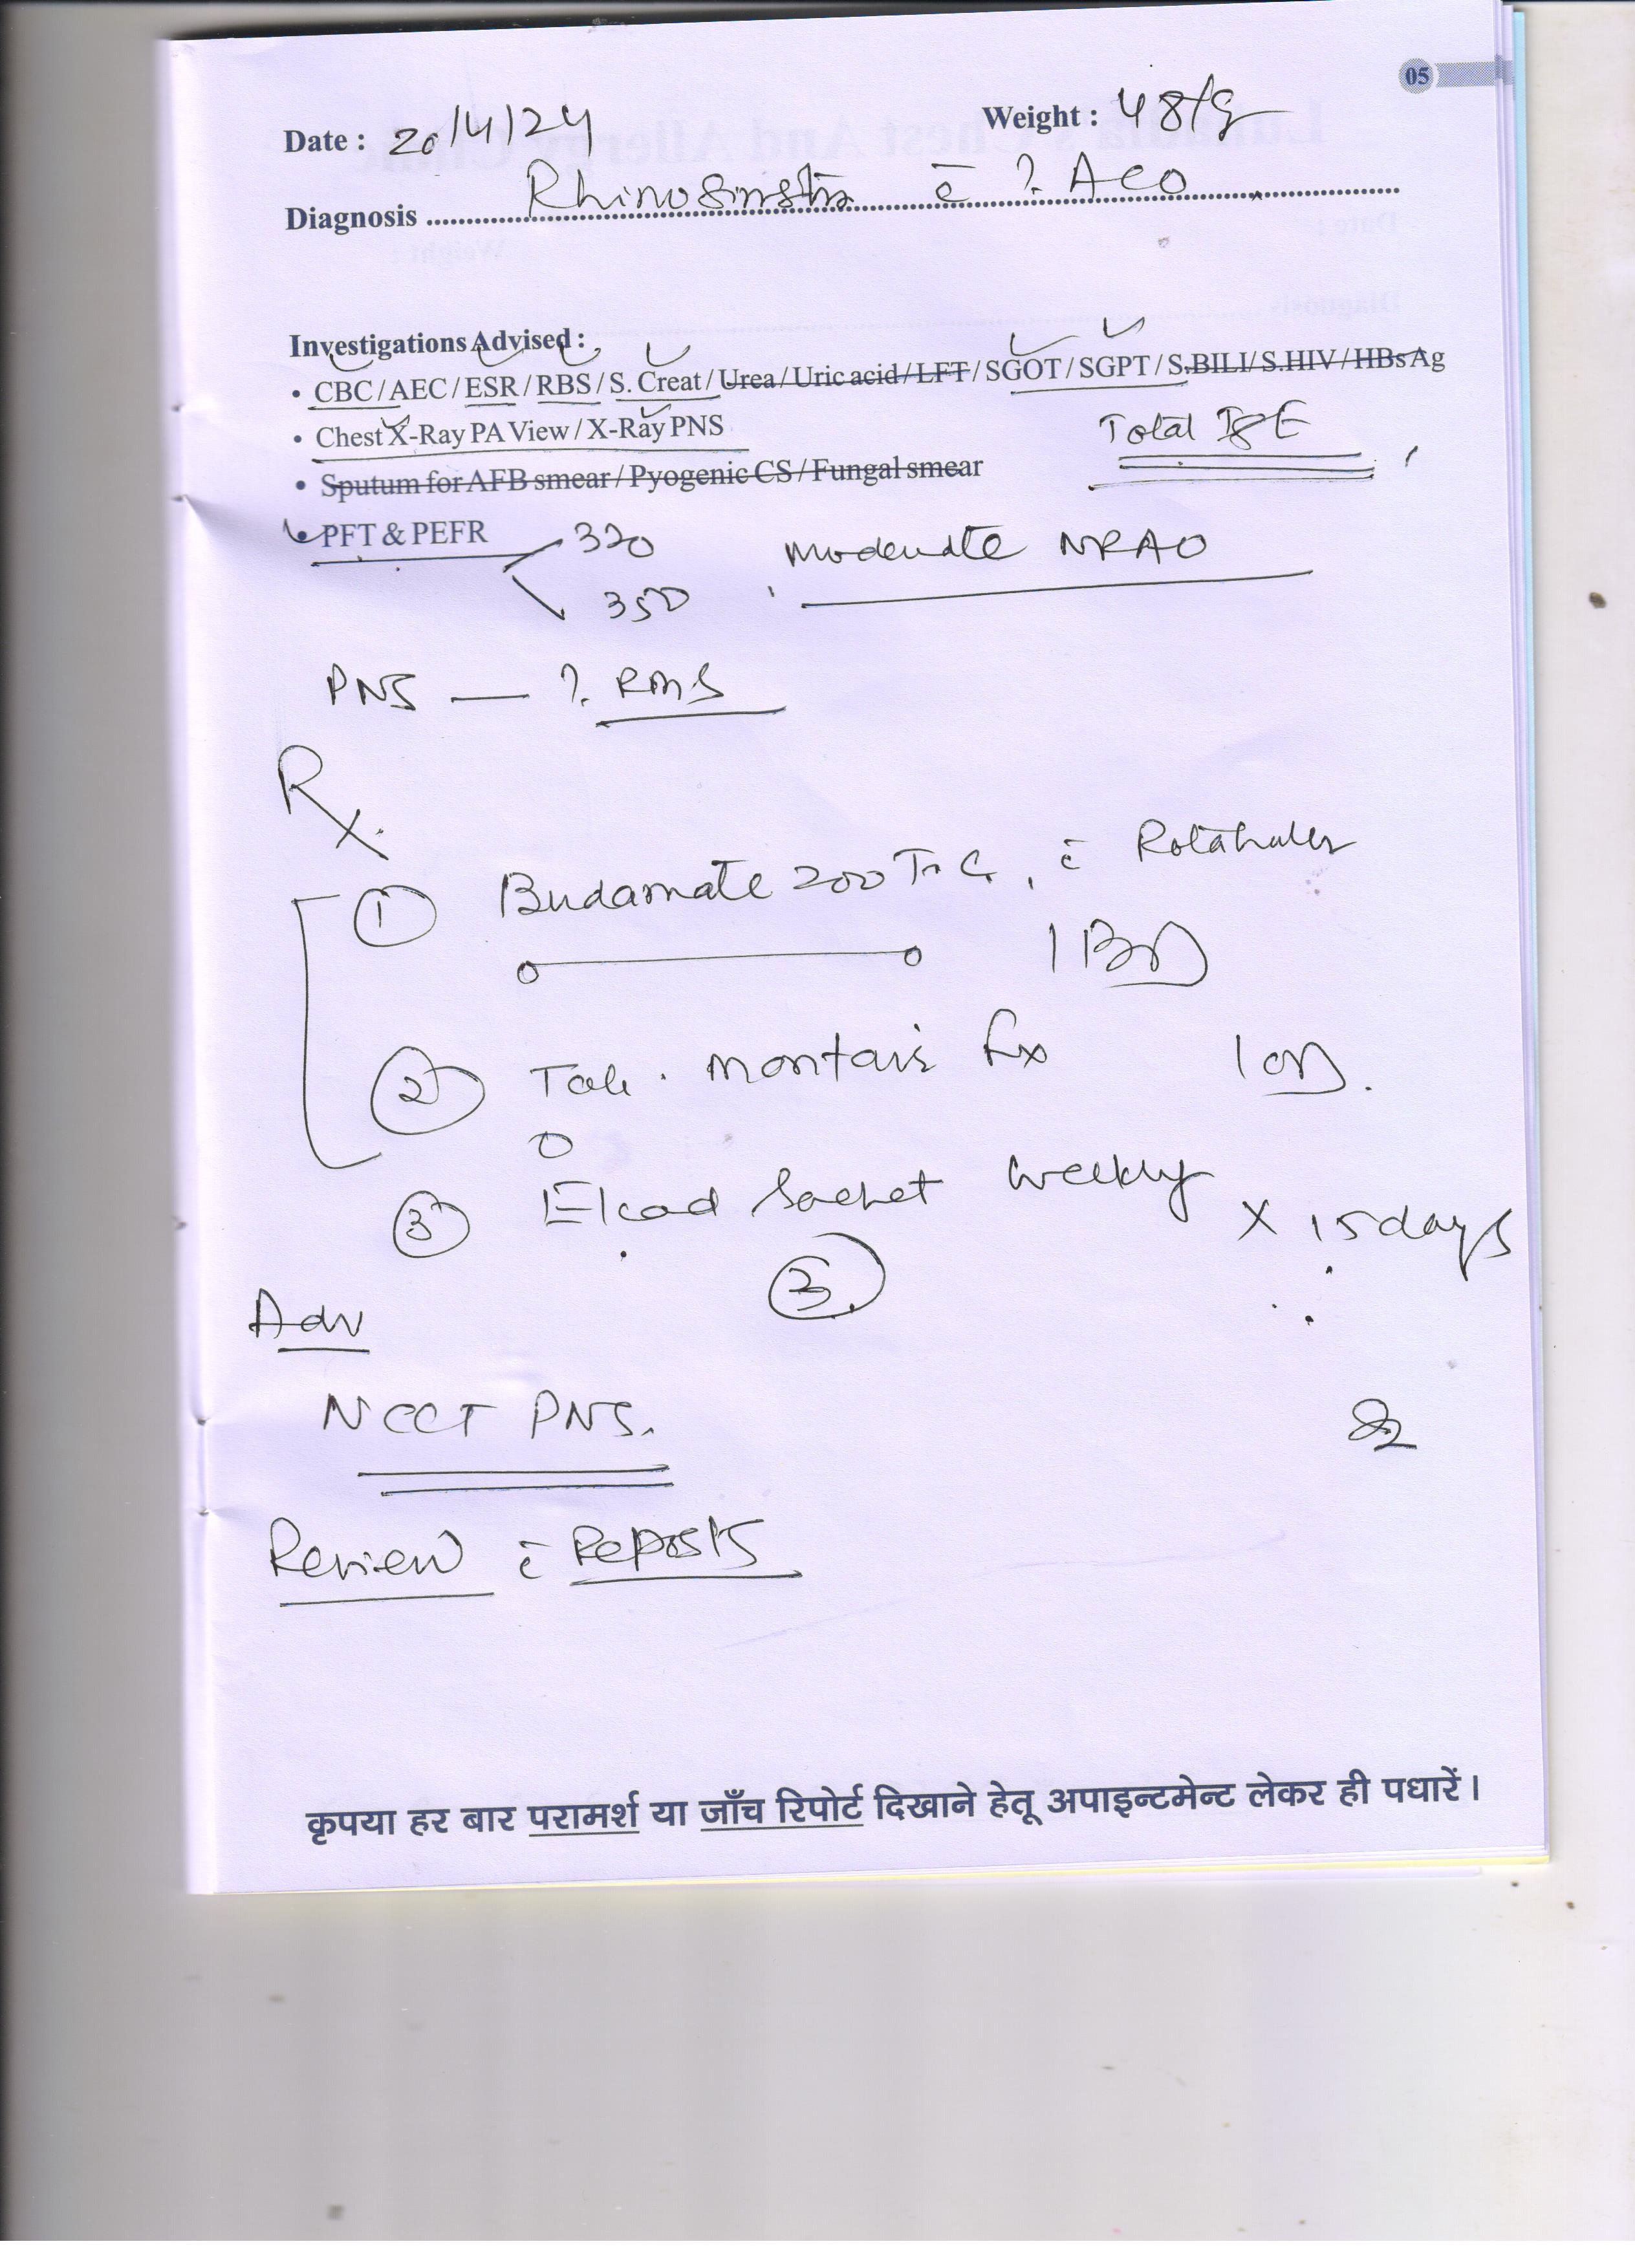 05
Date : 20/4/24 Weight : 48kg
Diagnosis Rhinosinsitis c̄ ?. ACO
Investigations Advised :
• CBC / AEC / ESR / RBS / S. Creat / Urea / Uric acid / LFT / SGOT / SGPT / S.BILI / S.HIV / HBsAg
• Chest X-Ray PA View / X-Ray PNS Total IgE
• Sputum for AFB smear / Pyogenic CS / Fungal smear
• PFT & PEFR 320 moderate NRAO
350
PNS — ?. RMS
Rx.
① Budamate 200 T c̄ Rotahaler
1 BD
② Tab. montair fx 1 OD.
③ Elcad Sachet weekly x 15 days
③.
Adv
NCCT PNS.
Review c̄ Reports
कृपया हर बार परामर्श या जाँच रिपोर्ट दिखाने हेतू अपाइन्टमेन्ट लेकर ही पधारें।